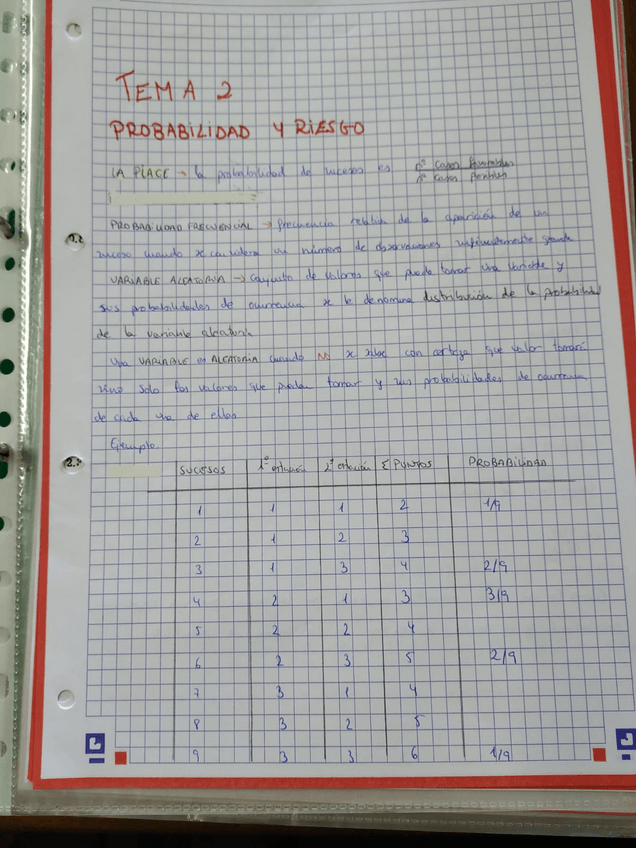 TEMA 2
PROBABILIDAD Y RIESGO
LA PLACE → la probabilidad de sucesos es nº casos favorables
nº casos posibles
PROBABILIDAD FRECUENCIAL → frecuencia relativa de la aparición de un
1.2
suceso cuando se considera un número de observaciones infinitamente grande
VARIABLE ALEATORIA → Conjunto de valores que puede tomar una variable y
sus probabilidades de ocurrencia se le denomina distribución de la probabilidad
de la variable aleatoria.
Una VARIABLE es ALEATORIA cuando NO se sabe con certeza que valor tomará
sino solo los valores que puedan tomar y sus probabilidades de ocurrencia
de cada una de ellas.
Ejemplo
2.
SUCESOS 1º 2º Σ PUNTOS PROBABILIDAD
1 1 1 2 1/9
2 1 2 3
3 1 3 4 2/9
4 2 1 3 3/9
5 2 2 4
6 2 3 5 2/9
7 3 1 4
8 3 2 5
9 3 3 6 1/9